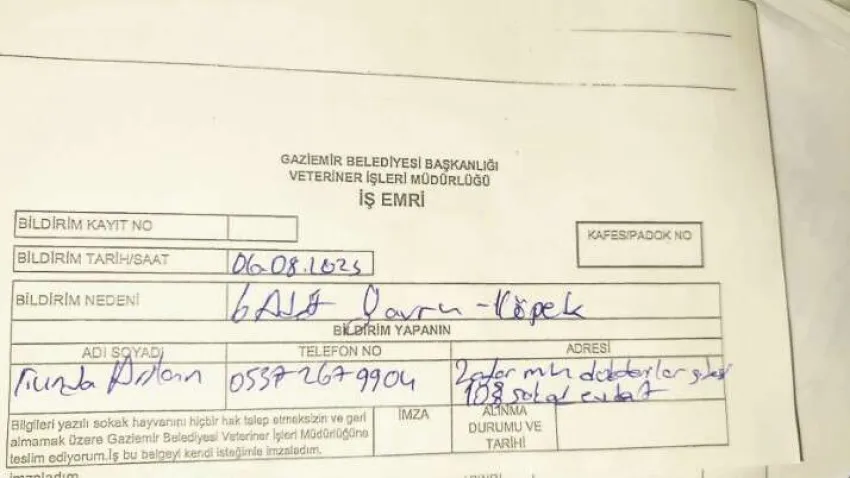 GAZİEMİR BELEDİYESİ BAŞKANLIĞI
VETERİNER İŞLERİ MÜDÜRLÜĞÜ
İŞ EMRİ
BİLDİRİM KAYIT NO
KAFES/PADOK NO
BİLDİRİM TARİH/SAAT 06.08.2023
BİLDİRİM NEDENİ Yavru-Köpek
BİLDİRİM YAPANIN
ADI SOYADI TELEFON NO ADRESİ
Arslan 0537 267 9904
108 sokak
Bilgileri yazılı sokak hayvanını hiçbir hak talep etmeksizin ve geri
almamak üzere Gaziemir Belediyesi Veteriner İşleri Müdürlüğüne
teslim ediyorum.İş bu belgeyi kendi isteğimle imzaladım.
İMZA
ALINMA
DURUMU VE
TARİHİ
imzaladım.